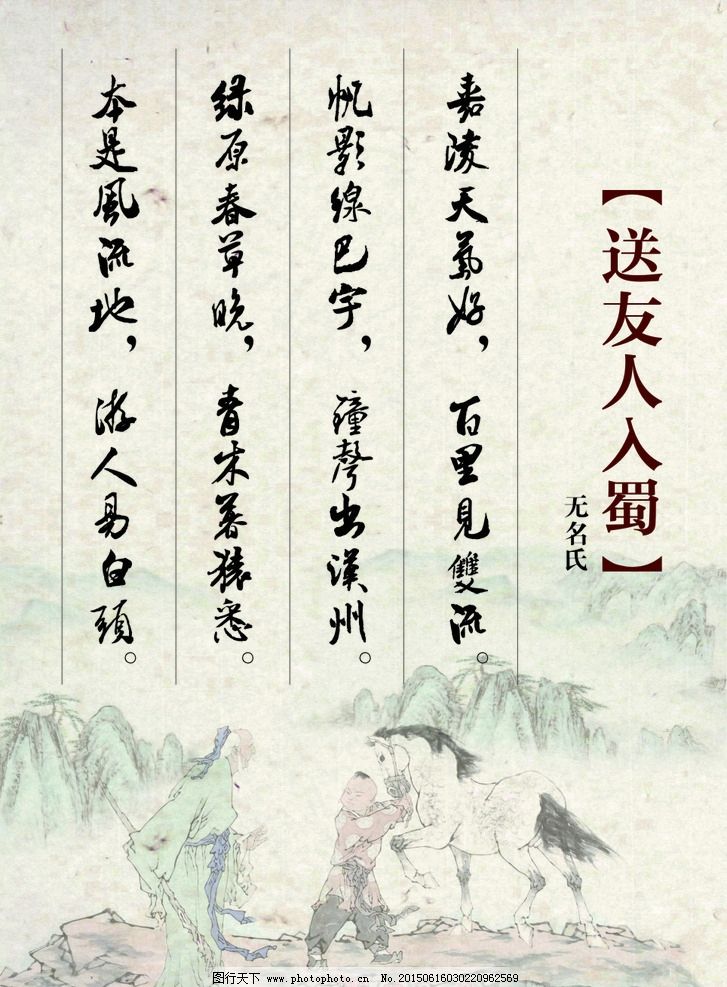 【送友人入蜀】
无名氏
嘉淩天氣好，百里見雙流。
帆影線巴字，鐘聲出漢州。
绿原春草晚，青木暮猿愁。
本是風流地，游人易白頭。
图行天下 www.photophoto.cn No.20150616030220962569